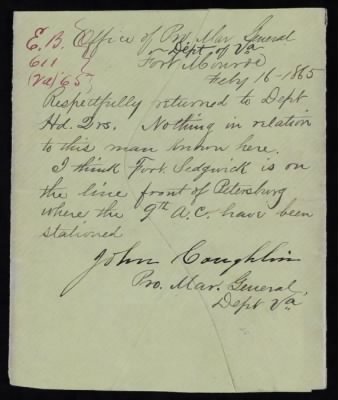 E. B. Office of Pro. Mar. General
611 Dept of Va
(Va) 65 Fort Monroe
Feby 16-1865
Respectfully returned to Dept
Hd. Qrs. Nothing in relation
to this man known here.
I think Fort. Sedgwick is on
the line front of Petersburg
where the 9th A.C. have been
stationed
John Coughlin
Pro. Mar. General,
Dept Va